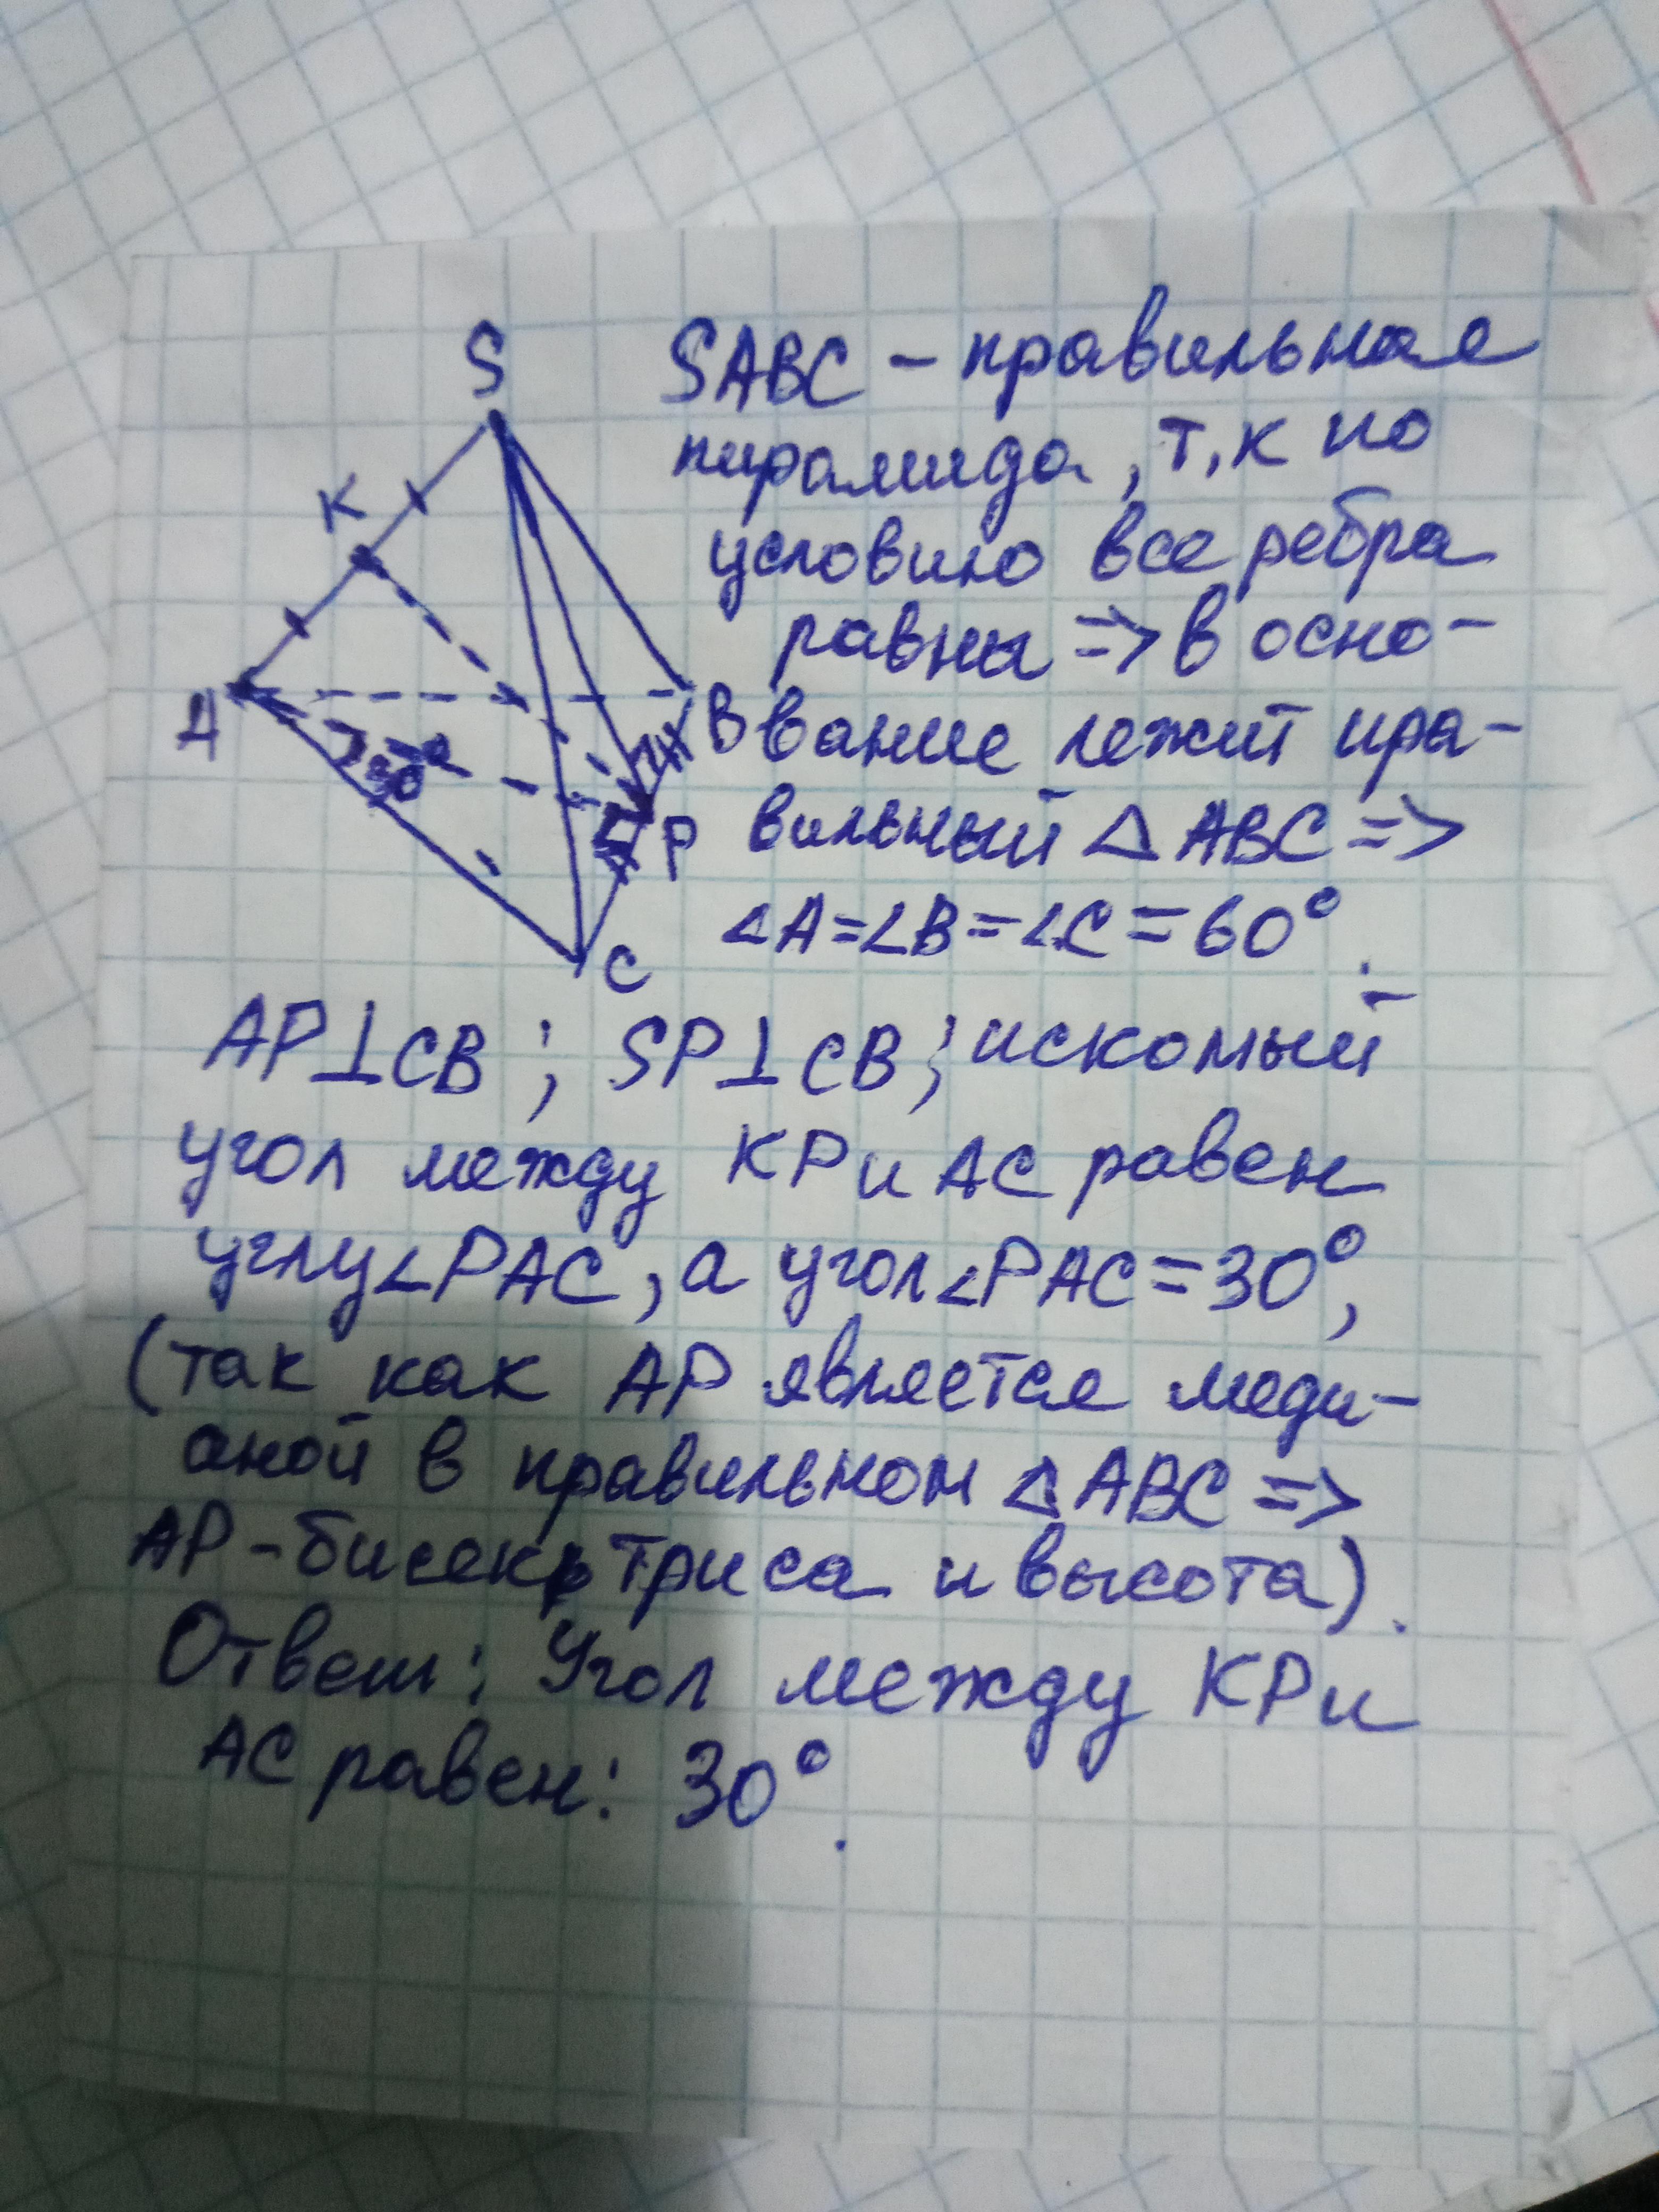 S
K
A
30°
B
P
C
SABC – правильная
пирамида, т,к по
условию все ребра
равны => в осно-
вание лежит пра-
вильный △ ABC =>
∠A=∠B=∠C=60°.
AP⊥CB; SP⊥CB; искомый
угол между KP и AC равен
углу ∠PAC, а угол ∠PAC=30°,
(так как AP является меди-
аной в правильном △ABC =>
AP-бисектриса и высота).
Ответ: Угол между KP и
AC равен: 30°.